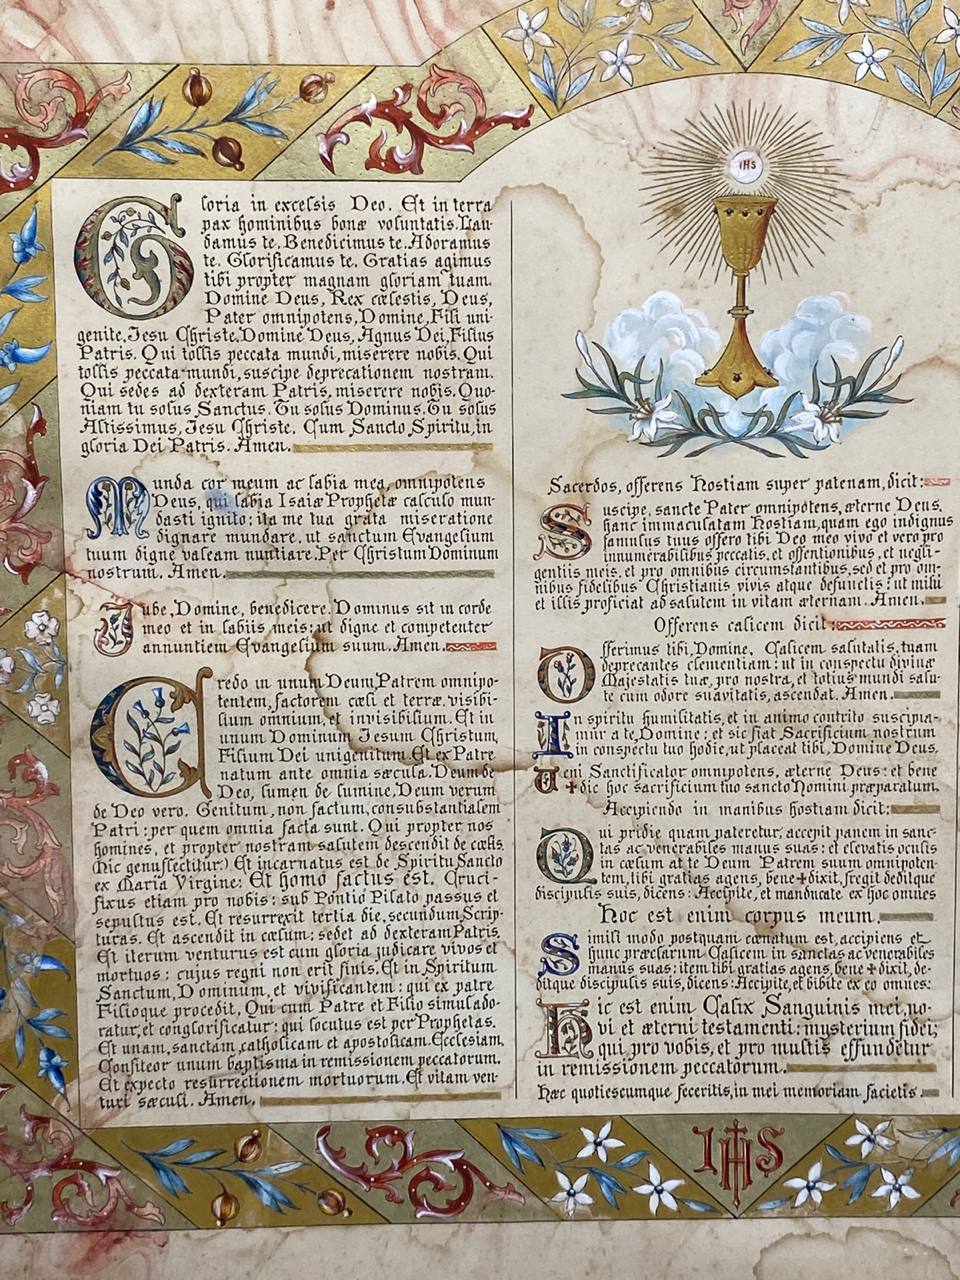 Gloria in excelsis Deo. Et in terra
pax hominibus bonæ voluntatis. Lau-
damus te. Benedicimus te. Adoramus
te. Glorificamus te. Gratias agimus
tibi propter magnam gloriam tuam.
Domine Deus, Rex cœlestis, Deus,
Pater omnipotens, Domine, Fili uni-
genite, Jesu Christe, Domine Deus, Agnus Dei, Filius
Patris. Qui tollis peccata mundi, miserere nobis. Qui
tollis peccata mundi, suscipe deprecationem nostram.
Qui sedes ad dexteram Patris, miserere nobis. Quo-
niam tu solus Sanctus. Tu solus Dominus. Tu solus
Altissimus, Jesu Christe. Cum Sancto Spiritu, in
gloria Dei Patris. Amen.
Munda cor meum ac labia mea, omnipotens
Deus, qui labia Isaiæ Prophetæ calculo mun-
dasti ignito: ita me tua grata miseratione
dignare mundare, ut sanctum Evangelium
tuum digne valeam nuntiare. Per Christum Dominum
nostrum. Amen.
Jube, Domine, benedicere. Dominus sit in corde
meo et in labiis meis: ut digne et competenter
annuntiem Evangelium suum. Amen.
Credo in unum Deum, Patrem omnipo-
tentem, factorem cœli et terræ, visibi-
lium omnium, et invisibilium. Et in
unum Dominum Jesum Christum,
Filium Dei unigenitum. Et ex Patre
natum ante omnia sæcula. Deum de
Deo, lumen de lumine, Deum verum
de Deo vero. Genitum, non factum, consubstantialem
Patri: per quem omnia facta sunt. Qui propter nos
homines, et propter nostram salutem descendit de cœlis.
(Hic genuflectitur.) Et incarnatus est de Spiritu Sancto
ex Maria Virgine: Et homo factus est. Cruci-
fixus etiam pro nobis: sub Pontio Pilato passus et
sepultus est. Et resurrexit tertia die, secundum Scrip-
turas. Et ascendit in cœlum: sedet ad dexteram Patris.
Et iterum venturus est cum gloria judicare vivos et
mortuos: cujus regni non erit finis. Et in Spiritum
Sanctum, Dominum, et vivificantem: qui ex patre
Filioque procedit. Qui cum Patre et Filio simul ado-
ratur, et conglorificatur: qui locutus est per Prophetas.
Et unam, sanctam, catholicam et apostolicam Ecclesiam.
Confiteor unum baptisma in remissionem peccatorum.
Et expecto resurrectionem mortuorum. Et vitam ven-
turi sæculi. Amen.
IHS
Sacerdos, offerens Hostiam super patenam, dicit:
Suscipe, sancte Pater omnipotens, æterne Deus,
hanc immaculatam Hostiam, quam ego indignus
famulus tuus offero tibi Deo meo vivo et vero pro
innumerabilibus peccatis, et offentionibus, et negli-
gentiis meis, et pro omnibus circumstantibus, sed et pro om-
nibus fidelibus Christianis vivis atque defunctis: ut mihi
et illis proficiat ad salutem in vitam æternam. Amen.
Offerens calicem dicit:
Offerimus tibi, Domine, Calicem salutatis, tuam
deprecantes clementiam: ut in conspectu divinæ
Majestatis tuæ, pro nostra, et totius mundi salu-
te cum odore suavitatis, ascendat. Amen.
In spiritu humilitatis, et in animo contrito suscipia-
mur a te, Domine: et sic fiat Sacrificium nostrum
in conspectu tuo hodie, ut placeat tibi, Domine Deus.
Veni Sanctificator omnipotens, æterne Deus: et bene
✠dic hoc sacrificium tuo sancto Nomini præparatum.
Accipiendo in manibus hostiam dicit:
Qui pridie quam pateretur, accepit panem in sanc-
tas ac venerabiles manus suas: et elevatis oculis
in cœlum at te Deum Patrem suum omnipoten-
tem, tibi gratias agens, bene✠dixit, fregit deditque
discipulis suis, dicens: Accipite, et manducate ex hoc omnes
Hoc est enim corpus meum.
Simili modo postquam cœnatum est, accipiens et
hunc præclarum Calicem in sanctas ac venerabiles
manus suas: item tibi gratias agens, bene✠dixit, de-
ditque discipulis suis, dicens: Accipite, et bibite ex eo omnes:
Hic est enim Calix Sanguinis mei, no-
vi et æterni testamenti: mysterium fidei;
qui pro vobis, et pro multis effundetur
in remissionem peccatorum.
Hæc quotiescumque feceritis, in mei memoriam facietis.
IHS